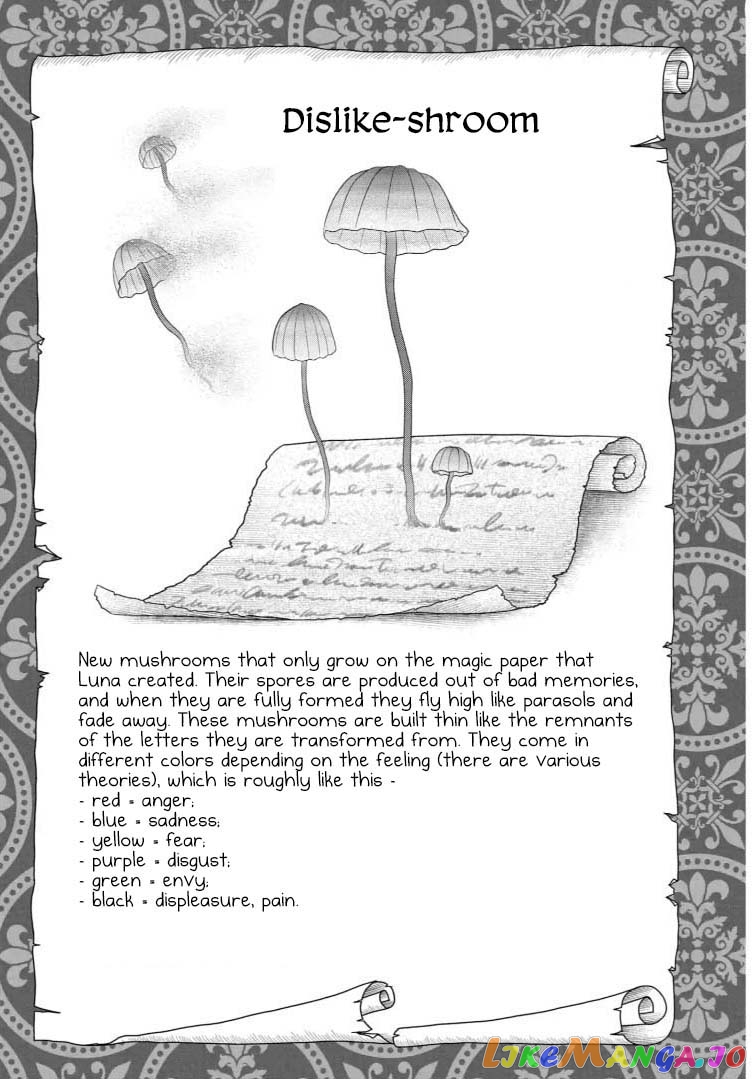 Dislike-shroom
New mushrooms that only grow on the magic paper that
Luna created. Their spores are produced out of bad memories,
and when they are fully formed they fly high like parasols and
fade away. These mushrooms are built thin like the remnants
of the letters they are transformed from. They come in
different colors depending on the feeling (there are various
theories), which is roughly like this -
- red = anger;
- blue = sadness;
- yellow = fear;
- purple = disgust;
- green = envy;
- black = displeasure, pain.
LIKEMANGA.IO